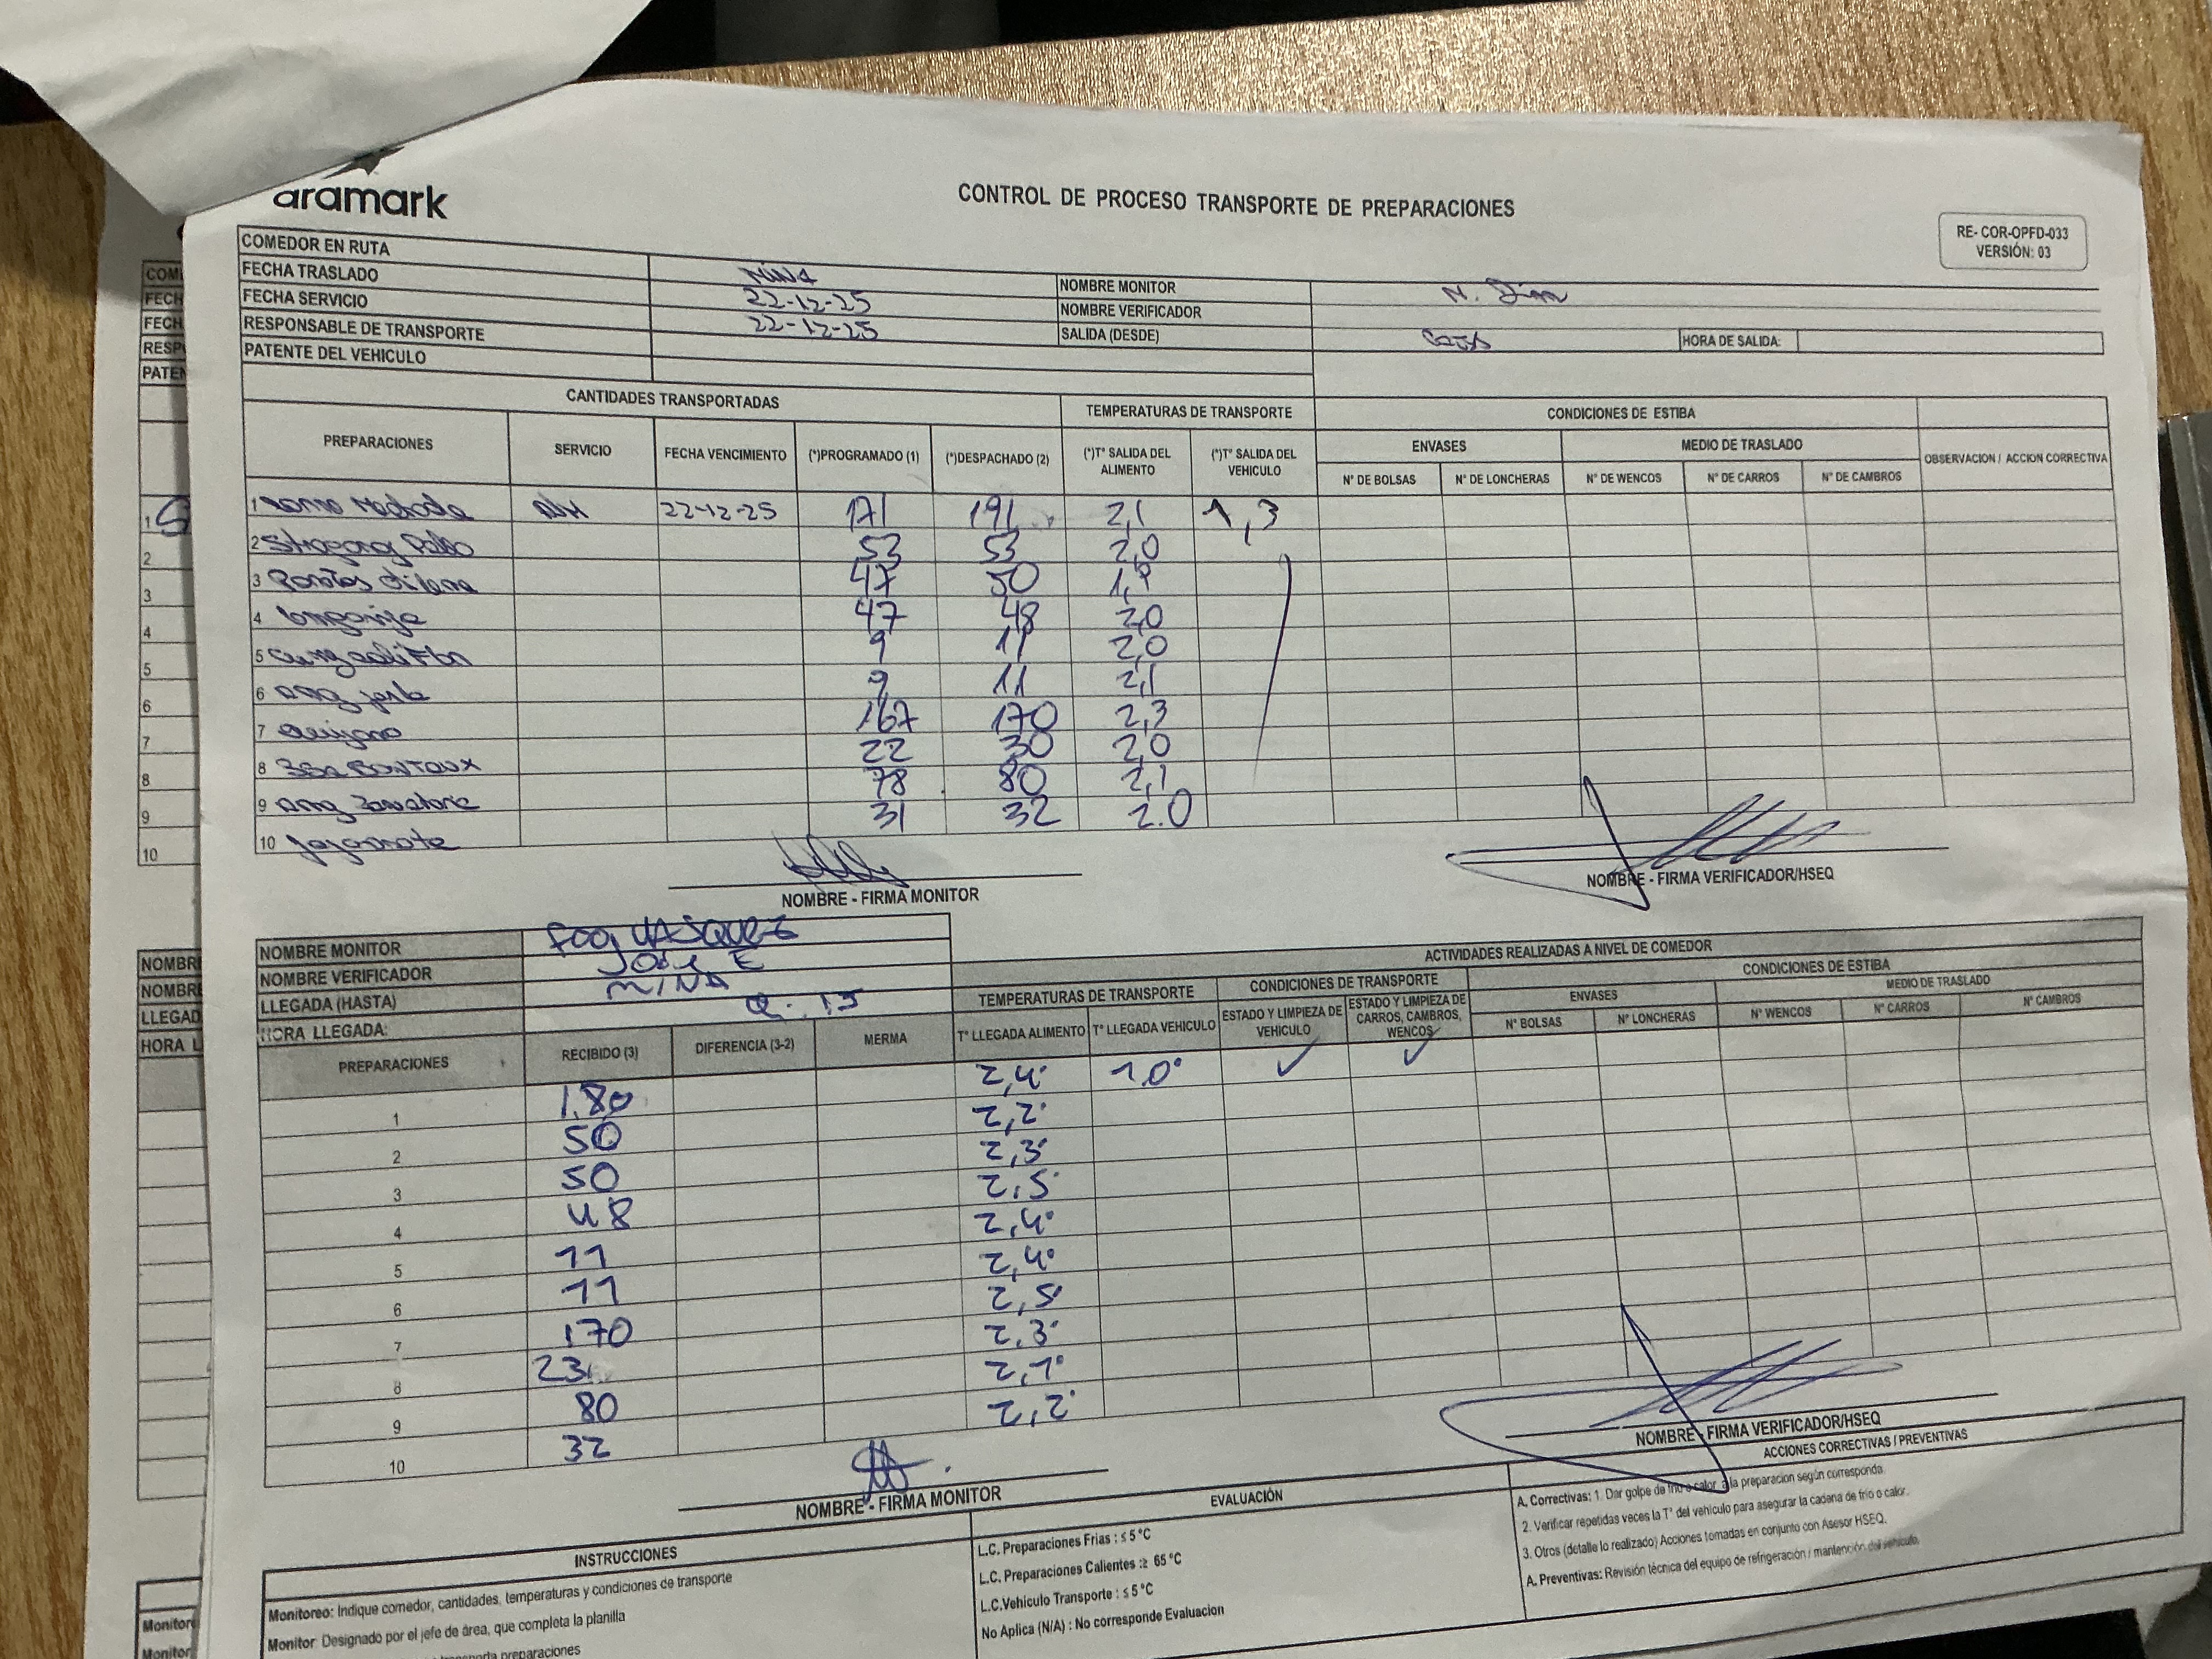 aramark
CONTROL DE PROCESO TRANSPORTE DE PREPARACIONES
RE- COR-OPFD-033
VERSIÓN: 03
COMEDOR EN RUTA MINA
FECHA TRASLADO 22-12-25 NOMBRE MONITOR N.
FECHA SERVICIO 22-12-25 NOMBRE VERIFICADOR
RESPONSABLE DE TRANSPORTE SALIDA (DESDE) HORA DE SALIDA:
PATENTE DEL VEHICULO
CANTIDADES TRANSPORTADAS TEMPERATURAS DE TRANSPORTE CONDICIONES DE ESTIBA
PREPARACIONES SERVICIO FECHA VENCIMIENTO (*)PROGRAMADO (1) (*)DESPACHADO (2) (*)T° SALIDA DEL ALIMENTO (*)T° SALIDA DEL VEHICULO ENVASES MEDIO DE TRASLADO OBSERVACION / ACCION CORRECTIVA
N° DE BOLSAS N° DE LONCHERAS N° DE WENCOS N° DE CARROS N° DE CAMBROS
1 22-12-25 171 191 2,1 1,3
2 Pollo 53 53 2,0
3 Porotos 47 50
4 longaniza 47 48 2,0
5 9 11 2,0
6 9 11 2,1
7 167 170 2,3
8 22 30 2,0
9 78 80 2,1
10 31 32 2.0
NOMBRE - FIRMA MONITOR
NOMBRE - FIRMA VERIFICADOR/HSEQ
NOMBRE MONITOR VASQUEZ
NOMBRE VERIFICADOR JOSE E
LLEGADA (HASTA) MINA
HORA LLEGADA:
ACTIVIDADES REALIZADAS A NIVEL DE COMEDOR
TEMPERATURAS DE TRANSPORTE CONDICIONES DE TRANSPORTE CONDICIONES DE ESTIBA
ENVASES MEDIO DE TRASLADO
PREPARACIONES RECIBIDO (3) DIFERENCIA (3-2) MERMA T° LLEGADA ALIMENTO T° LLEGADA VEHICULO ESTADO Y LIMPIEZA DE VEHICULO ESTADO Y LIMPIEZA DE CARROS, CAMBROS, WENCOS N° BOLSAS N° LONCHERAS N° WENCOS N° CARROS N° CAMBROS
1 180 2,4° 1,0° ✓ ✓
2 50 2,2°
3 50 2,3°
4 48 2,5°
5 11 2,4°
6 11 2,4°
7 170 2,5°
8 23 2,3°
9 80 2,1°
10 32 2,2°
NOMBRE - FIRMA MONITOR
NOMBRE - FIRMA VERIFICADOR/HSEQ
INSTRUCCIONES
Monitoreo: Indique comedor, cantidades, temperaturas y condiciones de transporte
Monitor: Designado por el jefe de área, que completa la planilla
preparaciones
EVALUACIÓN
L.C. Preparaciones Frias : ≤ 5 °C
L.C. Preparaciones Calientes :≥ 65 °C
L.C.Vehiculo Transporte : ≤ 5 °C
No Aplica (N/A) : No corresponde Evaluacion
ACCIONES CORRECTIVAS / PREVENTIVAS
A. Correctivas: 1. Dar golpe de frio o calor a la preparacion según corresponda.
2. Verificar repetidas veces la T° del vehiculo para asegurar la cadena de frio o calor.
3. Otros (detalle lo realizado) Acciones tomadas en conjunto con Asesor HSEQ.
A. Preventivas: Revisión técnica del equipo de refrigeración / mantención del vehiculo.